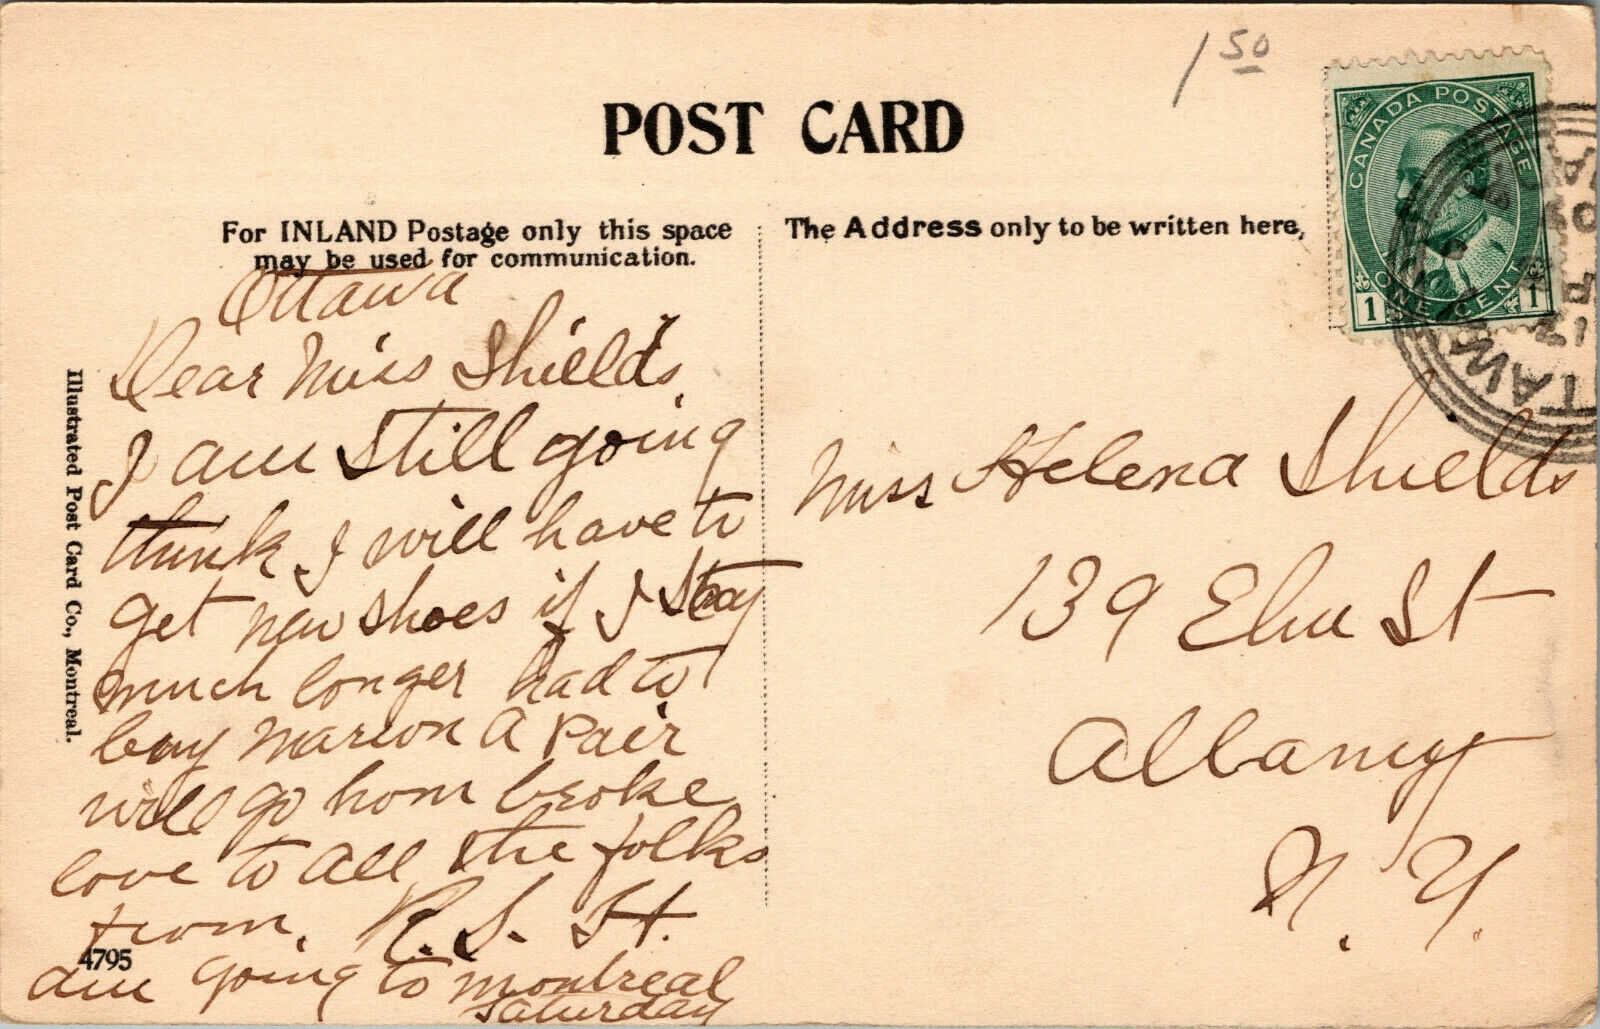 1 50
POST CARD
CANADA POSTAGE
ONE CENT
1 1
For INLAND Postage only this space
may be used for communication.
The Address only to be written here,
Ottawa
Dear Miss Shields
I am still going
think I will have to
get new shoes if I stay
much longer had to
buy Marion A Pair
will go hom broke
love to all the folks
from. R. S. H.
am going to montreal
Saturday
Miss Helena Shields
139 Elm St
Albany
N. Y.
Illustrated Post Card Co., Montreal.
4795